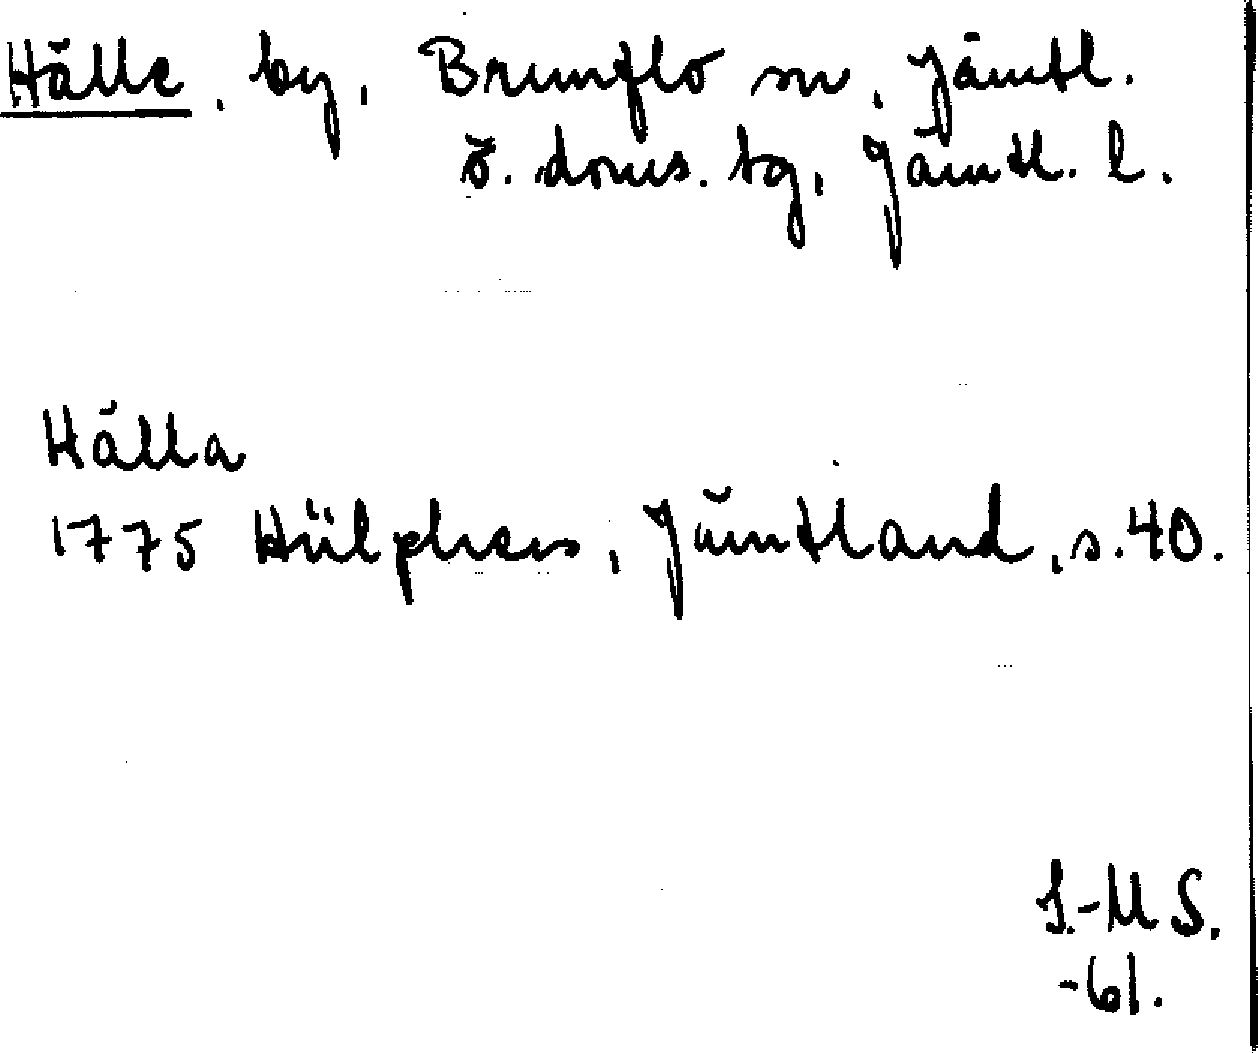 Hälle, by, Brunflo sn, Jämtl.
ö. doms. tg, Jämtl. l.
Hälla
1775 Hülphers, Jämtland, s. 40.
S.
-61.